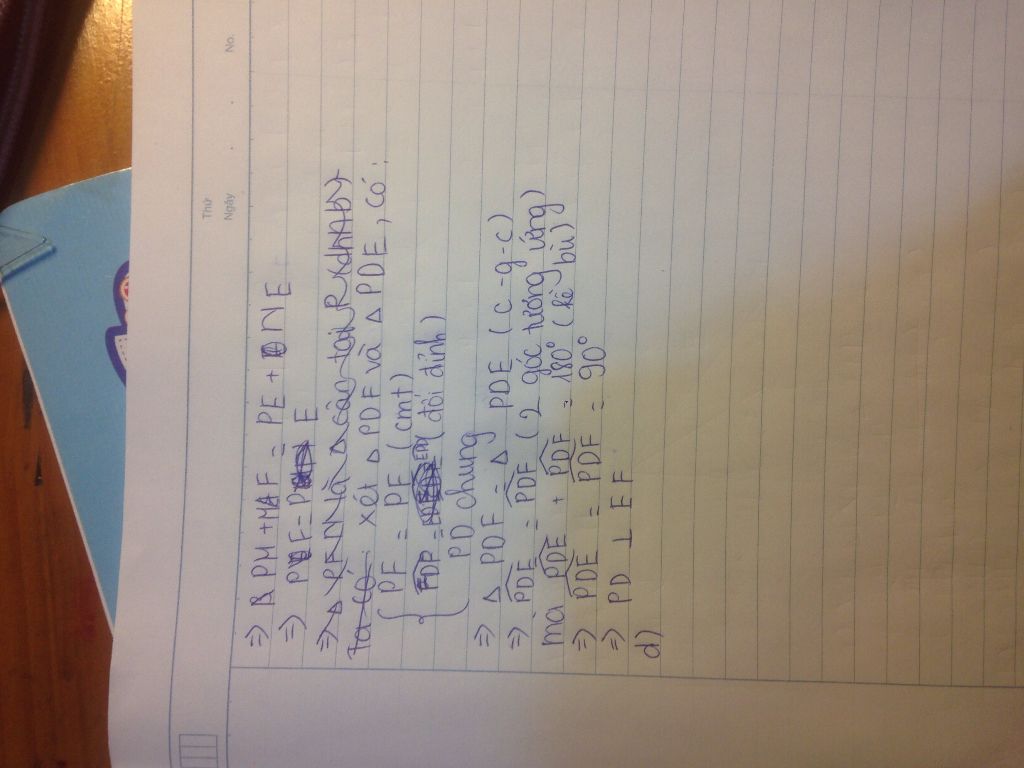 Thứ
Ngày
No.
⇒ PM + MF = PE + NE
⇒ PF = PE
⇒ Δ PEN là Δ cân tại P
Ta có xét Δ PDF và Δ PDE, có:
PF = PE (cmt)
FDP = EDP (đối đỉnh)
PD chung
⇒ Δ PDF = Δ PDE (c-g-c)
⇒ PDE = PDF (2 góc tương ứng)
mà PDE + PDF = 180° (kề bù)
⇒ PDE = PDF = 90°
⇒ PD ⊥ EF
d)